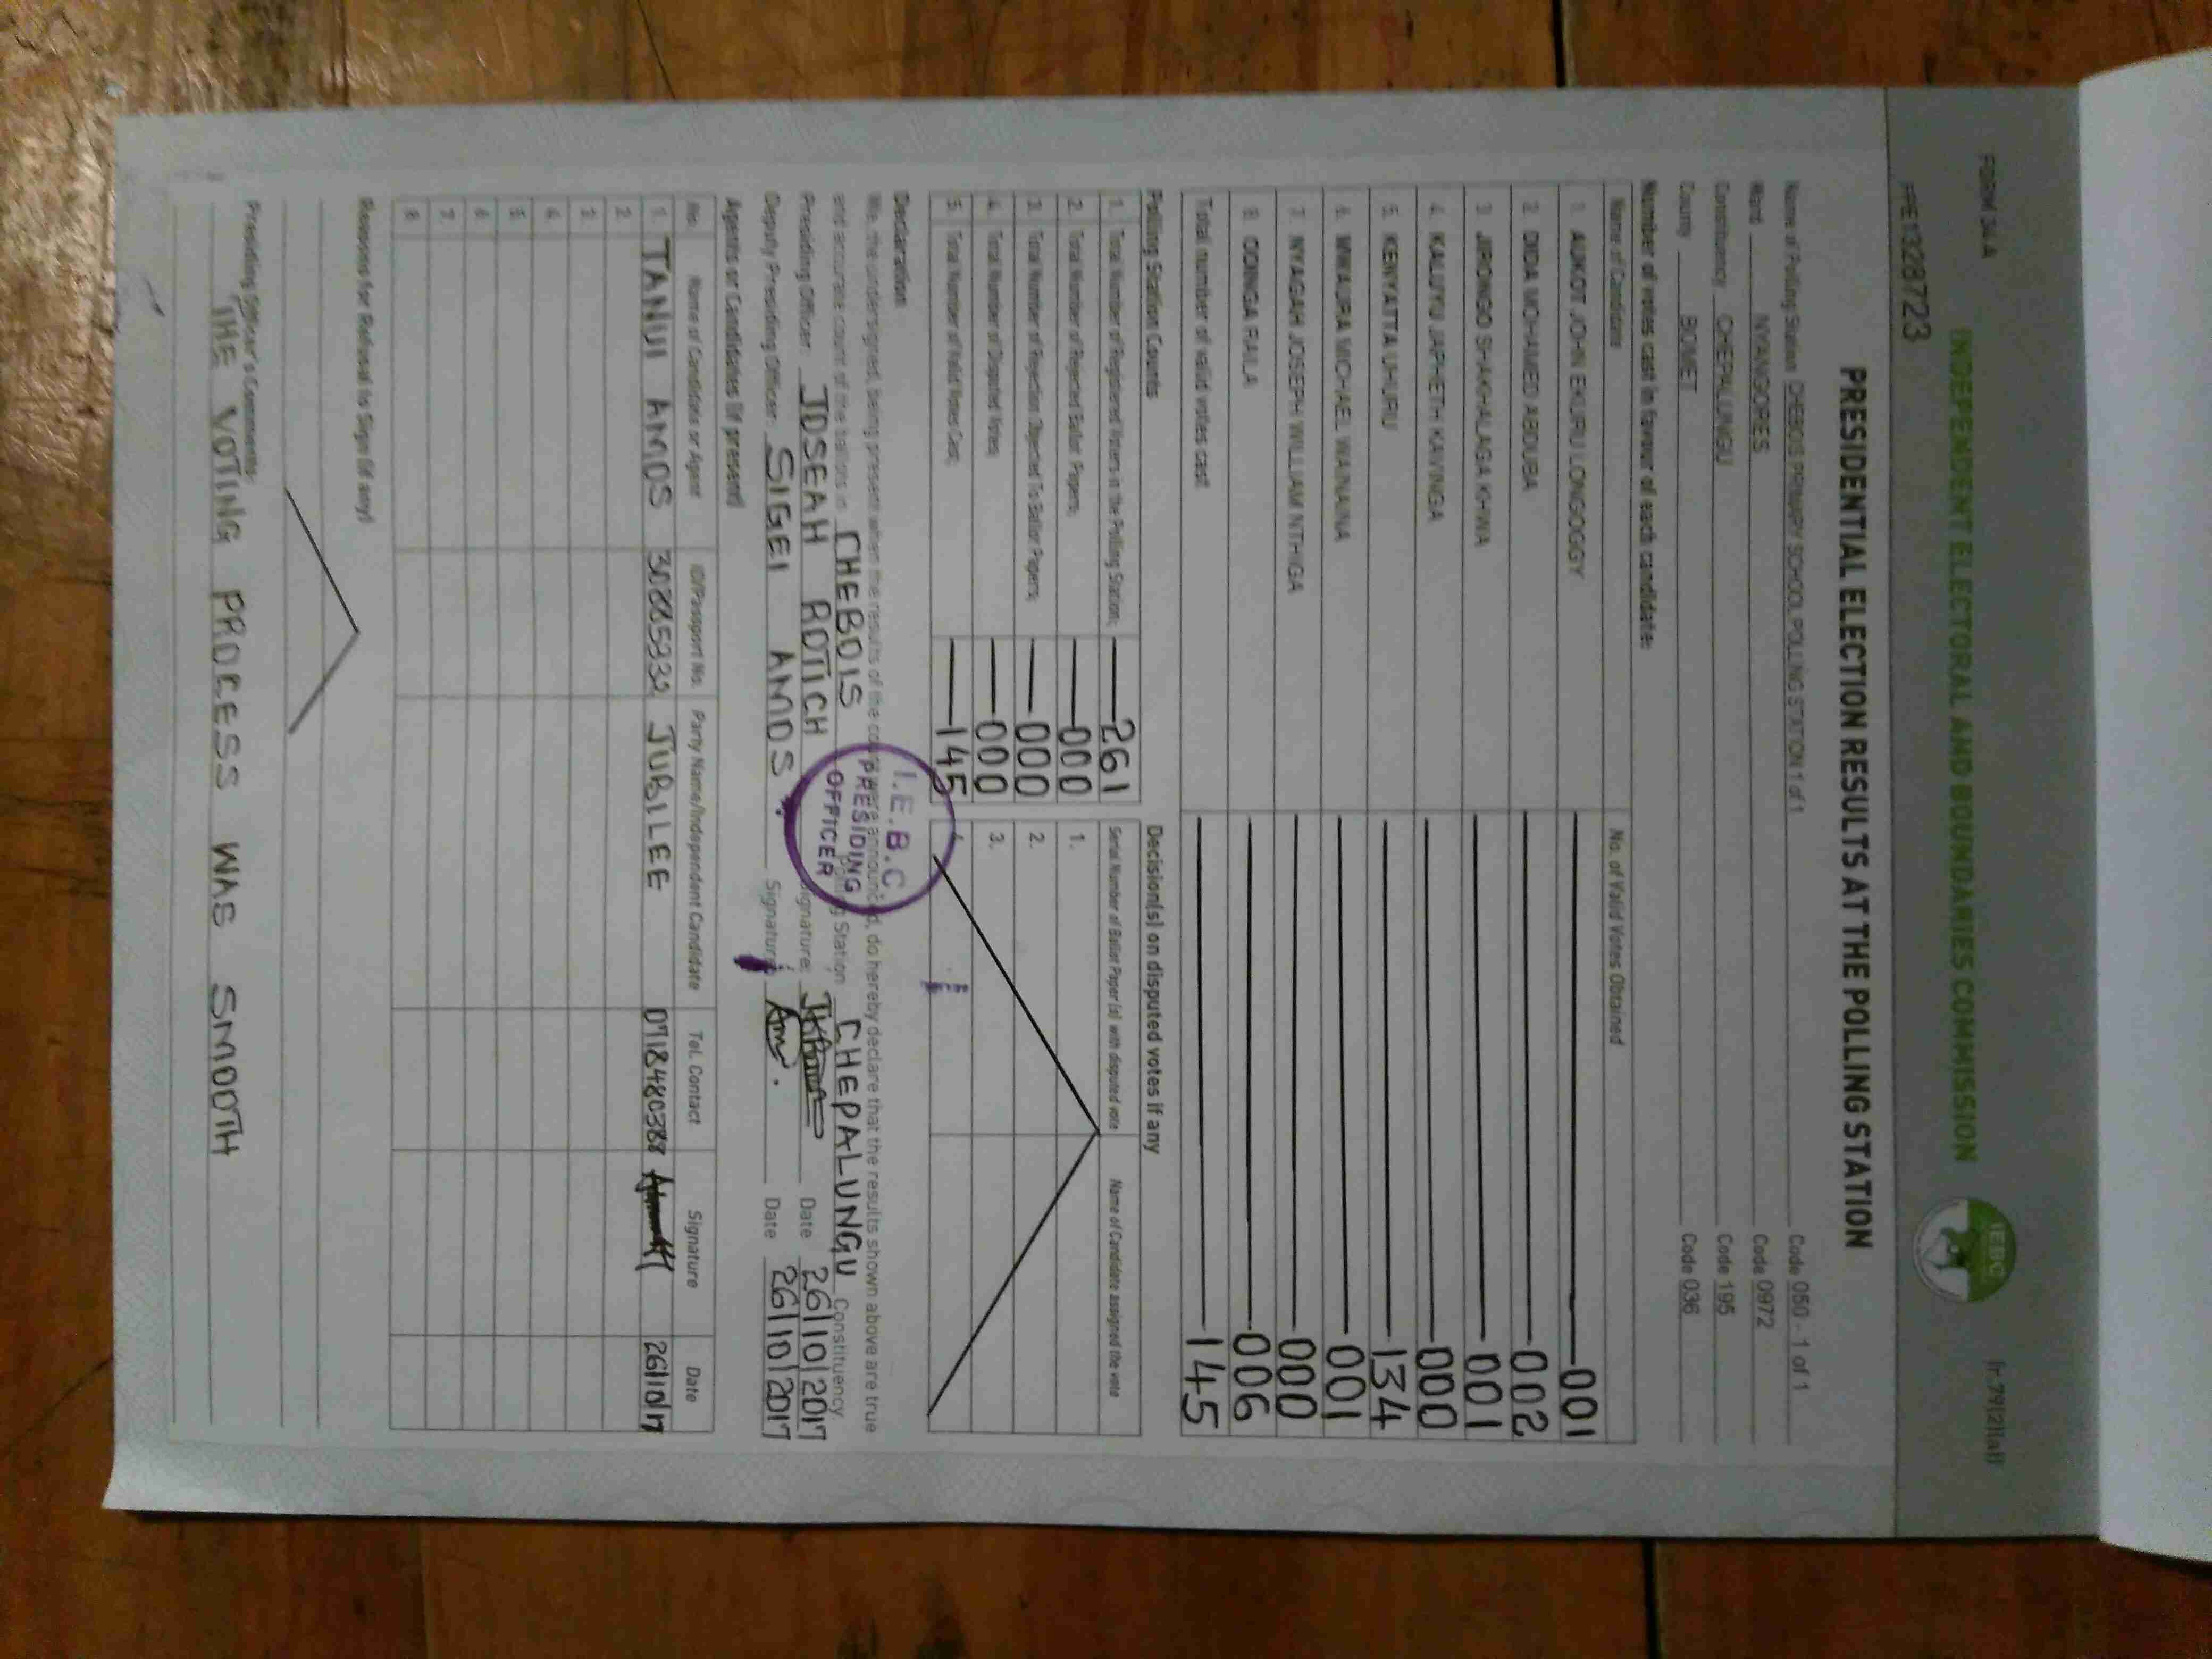 FORM 34 A
INDEPENDENT ELECTORAL AND BOUNDARIES COMMISSION
IEBC
(r.79(2)(a))
PRESIDENTIAL ELECTION RESULTS AT THE POLLING STATION
Name of Polling Station CHEBOIS PRIMARY SCHOOL POLLING STATION 1 of 1 Code 050 - 1 of 1
Ward NYANGORES Code 0972
Constituency CHEPALUNGU Code 195
County BOMET Code 036
Number of votes cast in favour of each candidate:
Name of Candidate No. of Valid Votes Obtained
1. AUKOT JOHN EKURU LONGOGGY 001
2. DIDA MOHAMED ABDUBA 002
3. JIRONGO SHAKHALAGA KHWA 001
4. KALUYU JAPHETH KAVINGA 000
5. KENYATTA UHURU 134
6. MWAURA MICHAEL WAINAINA 001
7. NYAGAH JOSEPH WILLIAM NTHIGA 000
8. ODINGA RAILA 006
Total number of valid votes cast 145
Polling Station Counts
1. Total Number of Registered Voters in the Polling Station; 261
2. Total Number of Rejected Ballot Papers; 000
3. Total Number of Rejection Objected To Ballot Papers; 000
4. Total Number of Disputed Votes; 000
5. Total Number of Valid Votes Cast; 145
Decision(s) on disputed votes if any
Serial Number of Ballot Paper (s) with disputed vote Name of Candidate assigned the vote
1.
2.
3.
4.
Declaration
We, the undersigned, being present when the results of the count were announced, do hereby declare that the results shown above are true
and accurate count of the ballots in CHEBOIS Polling Station CHEPALUNGU Constituency
Presiding Officer: JOSEAH ROTICH Signature: Date 26/10/2017
Deputy Presiding Officer: SIGEI AMOS. Signature: Date 26/10/2017
I.E.B.C
PRESIDING
OFFICER
Agents or Candidates (if present)
No. Name of Candidates or Agent ID/Passport No. Party Name/Independent Candidate Tel. Contact Signature Date
1. TANUI AMOS JUBILEE 0718480388 26/10/17
2.
3.
4.
5.
6.
7.
8.
Reasons for Refusal to Sign (if any)
Presiding Officer's Comments:
THE VOTING PROCESS WAS SMOOTH